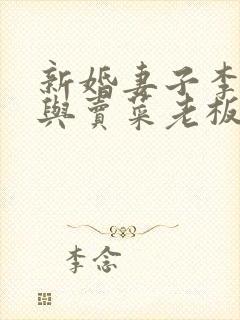 新婚妻子李
與賣菜老板
李念